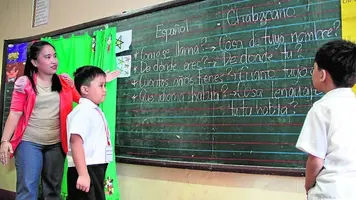 Español Chabacano
¿Como se llama? → Cosa di tuyo nombre?
¿De donde eres? → De donde tu?
¿Cuantos años tienes? → Cuanto
¿Que idioma hablan? → Cosa lenguaje
ta habla?